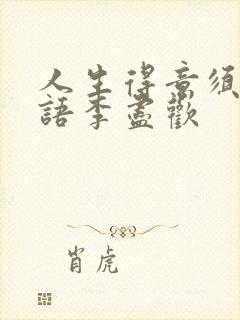 人生得意須
語李盡歡
肖虎